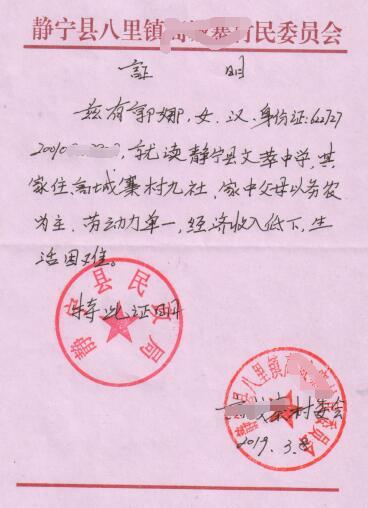 静宁县八里镇高城寨村民委员会
证 明
兹有郭娜，女，汉，身份证：62727
20010，就读静宁县文萃中学，其
家住高城寨村九社，家中父母以务农
为主，劳动力单一，经济收入低下，生
活困难。
特此证明
静宁县民政局
静宁县八里镇
村委会
2019.3.8